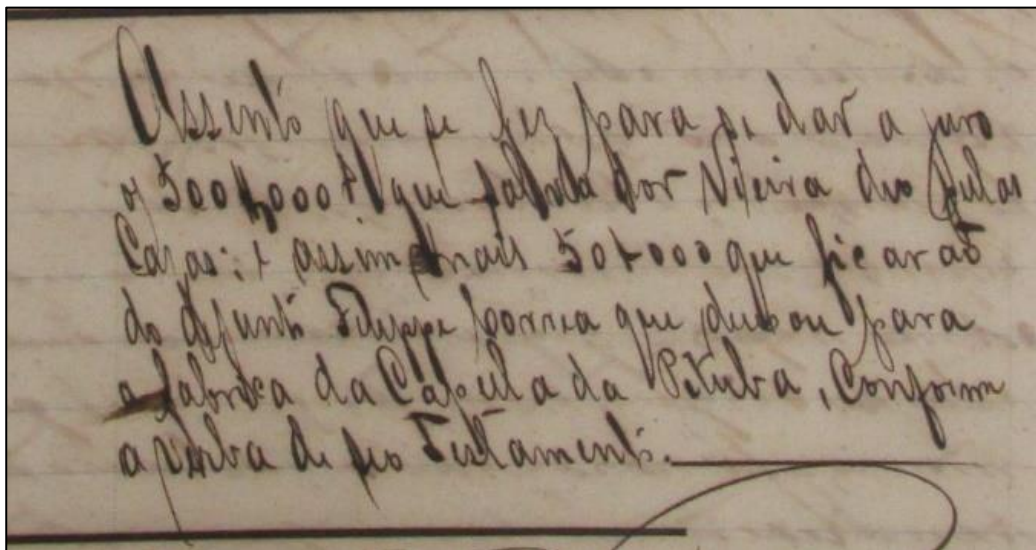 Assento que se fez para se dar a juro
os 500$000 rs que Vieira deo pelas
Cazas; e assim mais 50$000 que ficarão
do defunto Felippe Correa que deixou para
a fabrica da Capela da Pituba, Conforme
a verba de seo Testamento.